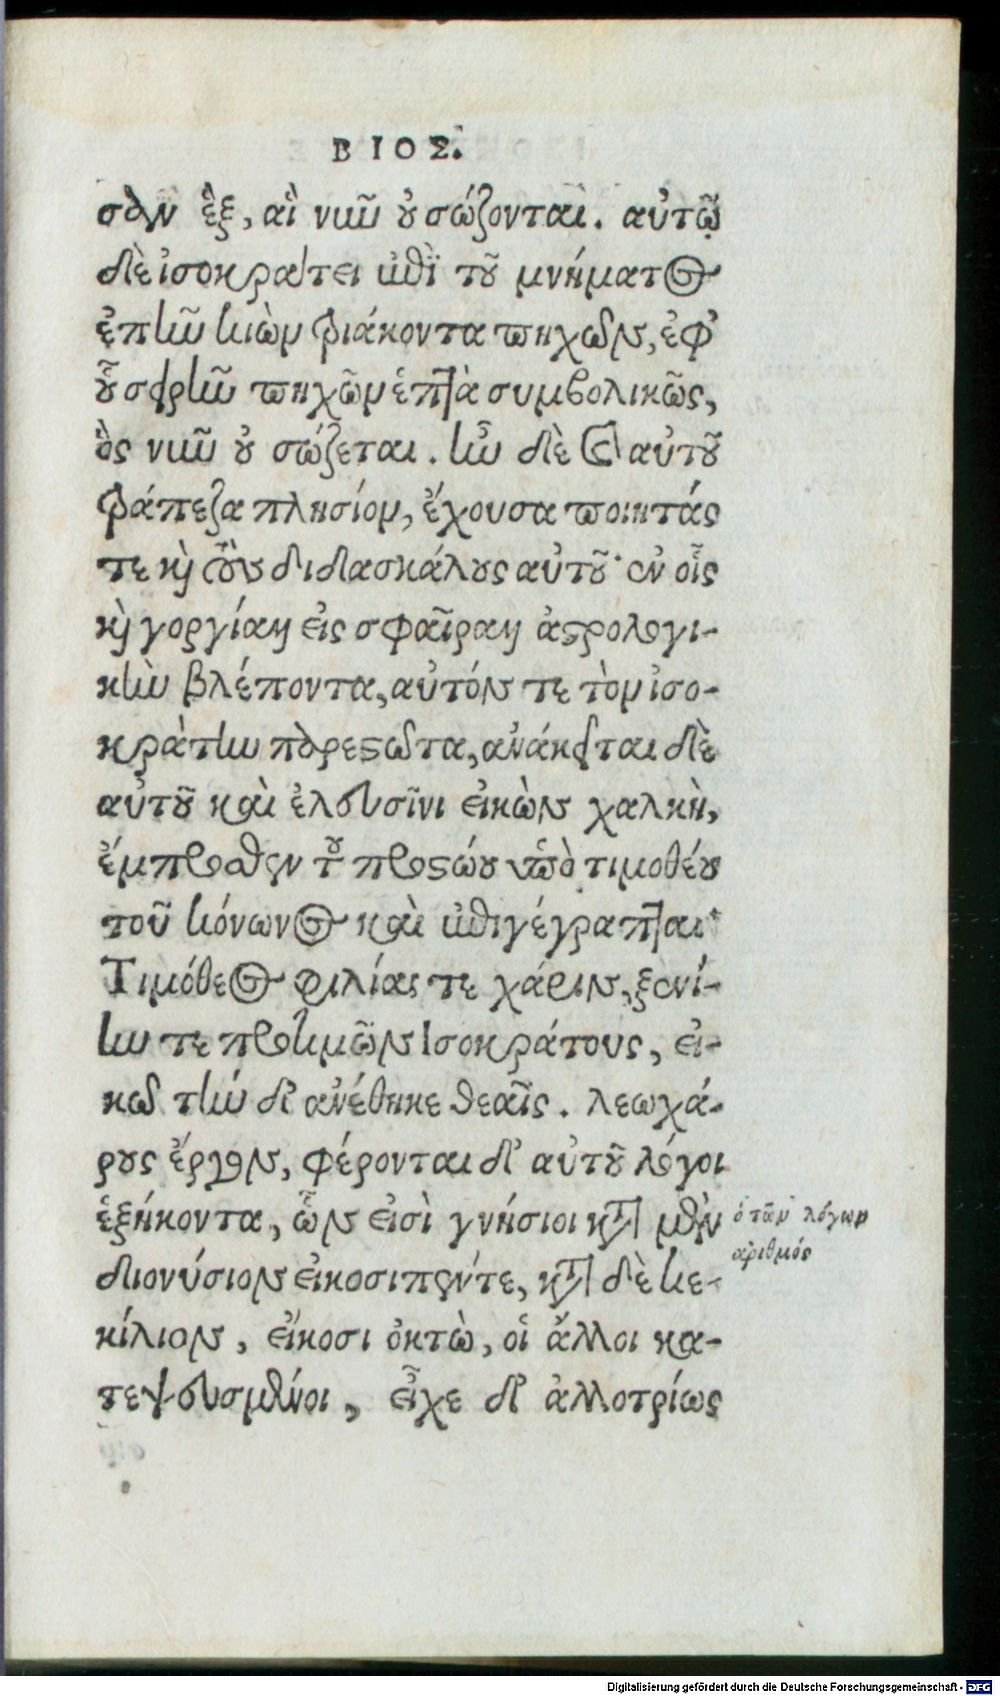 ΒΙΟΣ.
σαν ἓξ, αἳ νῦν οὐ σώζονται. αὐτῷ
δὲ ἰσοκράτει ἐπὶ τοῦ μνήματος
ἐπῆν κιὼν τριάκοντα πηχῶν, ἐφ'
οὗ σειρὴν πηχῶν ἑπτὰ συμβολικῶς,
ὃς νῦν οὐ σώζεται. ἦν δὲ καὶ αὐτοῦ
τράπεζα πλησίον, ἔχουσα ποιητάς
τε καὶ τοὺς διδασκάλους αὐτοῦ· ἐν οἷς
καὶ γοργίαν εἰς σφαῖραν ἀστρολογι-
κὴν βλέποντα, αὐτόν τε τὸν ἰσο-
κράτην παρεστῶτα, ἀνάκειται δὲ
αὐτοῦ καὶ ἐλευσῖνι εἰκὼν χαλκὴ,
ἔμπροσθεν τοῦ προστώου ὑπὸ τιμοθέου
τοῦ κόνωνος καὶ ἐπιγέγραπται·
Τιμόθεος φιλίας τε χάριν, ξενί-
ην τε προτιμῶν Ισοκράτους, εἰ-
κὼ τήνδ' ἀνέθηκε θεαῖς. λεωχά-
ρους ἔργον, φέρονται δ' αὐτοῦ λόγοι
ἑξήκοντα, ὧν εἰσὶ γνήσιοι κατὰ μὲν
διονύσιον εἰκοσιπέντε, κατὰ δὲ κε-
κίλιον, εἴκοσι ὀκτὼ, οἱ ἄλλοι κα-
τεψευσμένοι, εἶχε δ' ἀλλοτρίως
ὁ τῶν λόγων
ἀριθμός
Digitalisierung gefördert durch die Deutsche Forschungsgemeinschaft - DFG